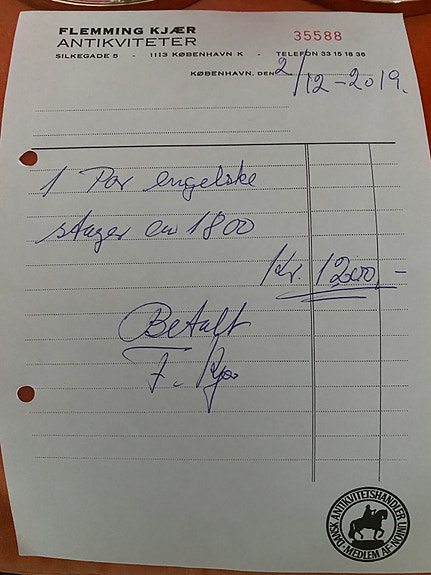 FLEMMING KJÆR
ANTIKVITETER
35588
SILKEGADE 5 - 1113 KØBENHAVN K - TELEFON 33 15 18 36
KØBENHAVN, DEN 2/12-2019.
1 Par engelske
stager ca 1800
Kr. 1200,-
Betalt
F. Kjær
DANSK ANTIKVITETSHANDLER UNION
MEDLEM AF